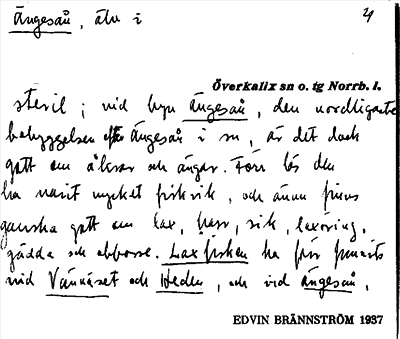 Ängesån, älv i 4
Överkalix sn o. tg Norrb. l.
steril ; vid byn Ängesån, den nordligaste
bebyggelsen efter Ängesån i sn, är det dock
gott om åkrar och ängar. Förr lös den
ha varit mycket fiskrik, och ännu finns
ganska gott om lax, harr, sik, laxöring,
gädda och abborre. Laxfisken ha förr funnits
vid Vännäset och Heden, och vid Ängesån,
EDVIN BRÄNNSTRÖM 1937